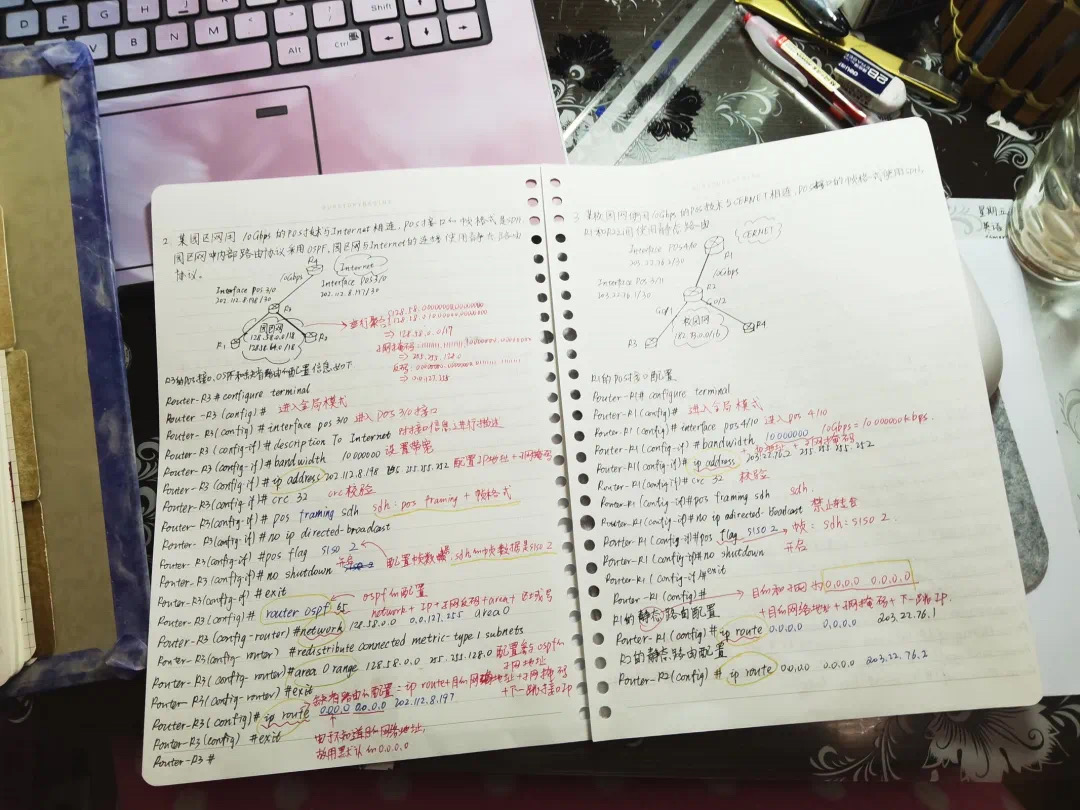 D
F
G
H
J
K
L
V
B
N
M
Shift
Alt
Ctrl
2. 某园区网用10Gbps的POS技术与Internet相连, POS接口的帧格式是SDH.
园区网内部路由协议采用OSPF, 园区网与Internet的连接使用静态路由
协议。
R4
Internet
10Gbps
Interface POS 3/0
202.112.8.198/30
Interface POS3/0
202.112.8.197/30
R3
园区网
128.58.0.0/18
128.58.64.0/18
R1
R2
进行聚合
⇒ 128.58.0.0/17
子网掩码
⇒ 255.255.128.0
反码
⇒ 0.0.127.255
R3的POS接口、OSPF和缺省路由的配置信息如下
Router-R3 # configure terminal
Router-R3 (config) # 进入全局模式
Router-R3 (config) # interface pos 3/0 进入POS 3/0接口
Router-R3 (config-if) # description To Internet 对接口信息进行描述
Router-R3 (config-if) # bandwidth 10000000 设置带宽
Router-R3 (config-if) # ip address 202.112.8.198 255.255.255.252 配置IP地址+子网掩码
Router-R3 (config-if) # crc 32 crc校验
Router-R3 (config-if) # pos framing sdh sdh: pos framing + 帧格式
Router-R3 (config-if) # no ip directed-broadcast
Router-R3 (config-if) # pos flag s1s0 2 配置帧数据 sdh的帧数据是s1s0 2
Router-R3 (config-if) # no shutdown 开启
Router-R3 (config-if) # exit
Router-R3 (config) # router ospf 65 ospf的配置
network + IP + 子网反码 + area + 区域号
Router-R3 (config-router) # network 128.58.0.0 0.0.127.255 area 0
Router-R3 (config-router) # redistribute connected metric-type 1 subnets
Router-R3 (config-router) # area 0 range 128.58.0.0 255.255.128.0 配置聚合ospf的
子网地址
Router-R3 (config-router) # exit
缺省路由的配置: ip route+目的网络地址+子网掩码
+下一跳接口IP
Router-R3 (config) # ip route 0.0.0.0 0.0.0.0 202.112.8.197
Router-R3 (config) # exit
由于不知道目的网络地址,
故用默认的0.0.0.0
Router-R3 #
3. 某校园网使用10Gbps的POS技术与CERNET相连, POS接口的帧格式使用SDH.
R1和R2之间使用静态路由
CERNET
Interface POS4/0
R1
10Gbps
R2
R3
R4
校园网
R1的POS接口配置
Router-R1 # configure terminal
Router-R1 (config) # 进入全局模式
Router-R1 (config) # interface pos 4/10 进入pos 4/10
Router-R1 (config-if) # bandwidth 10000000 10Gbps=10000000kbps.
IP地址+子网掩码
Router-R1 (config-if) # ip address 203.22.76.2 255.255.255.252
Router-R1 (config-if) # crc 32 校验
Router-R1 (config-if) # pos framing sdh sdh.
Router-R1 (config-if) # no ip directed-broadcast 禁止转合
Router-R1 (config-if) # pos flag s1s0 2 帧: sdh: s1s0 2
Router-R1 (config-if) # no shutdown 开启
Router-R1 (config-if) # exit
Router-R1 (config) # 目的和子网为 0.0.0.0 0.0.0.0
R1的静态路由配置 +目的网络地址+子网掩码+下一跳IP.
Router-R1 (config) # ip route 0.0.0.0 0.0.0.0 203.22.76.1
R2的静态路由配置
Router-R2 (config) # ip route 0.0.0.0 0.0.0.0 203.22.76.2
星期五
英语
deli
2B